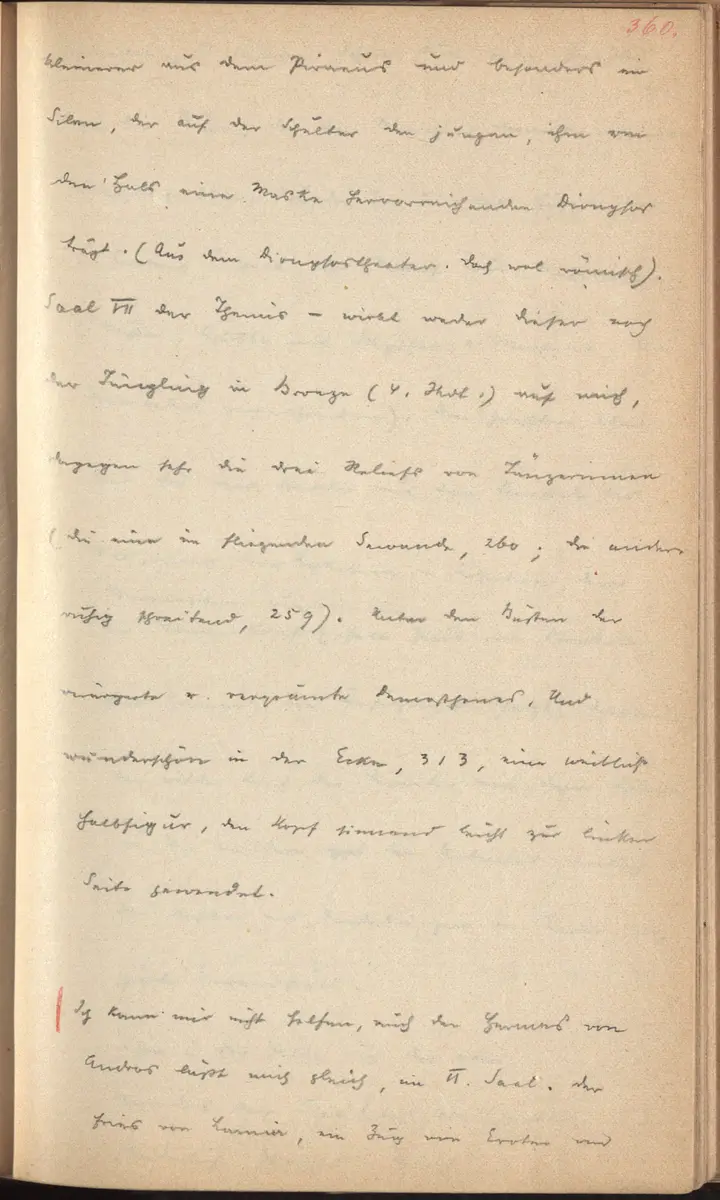 360.
kleinerer aus dem Piraeus und besonders ein
Silen, der auf der Schulter den jungen, ihm von
den Hals eine Maske hervorreichenden Dionysos
trägt. (Aus dem Dionysostheater. Doch wol römisch).
Saal VII der Themis – wirkt weder dieser noch
der Jüngling in Bronze (4. Jhdt.) auf mich,
dagegen sehr die drei Reliefs von Tänzerinnen
(die eine im fliegenden Gewande, 260; die andere
ruhig schreitend, 259). Unter den Büsten der
verärgerte u. vergrämte Demosthenes. Und
wunderschön in der Ecke, 313, eine weibliche
Halbfigur, den Kopf sinnend leicht zur linken
Seite gewendet.
Ich kann mir nicht helfen, auch der Hermes von
Andros läßt mich gleich, im VI. Saal. Der
Fries von Lamia, ein Zug von Eroten und